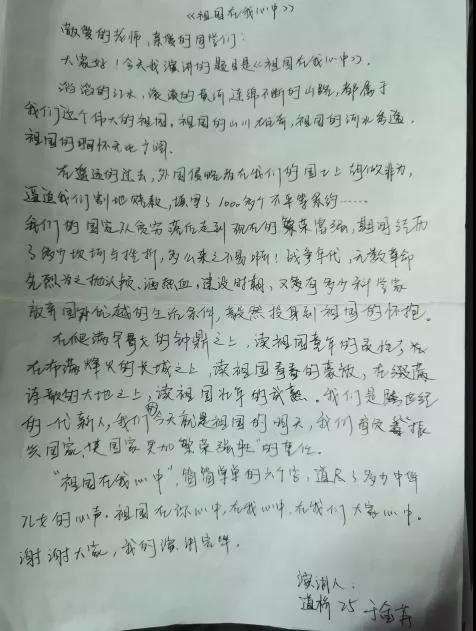 《祖国在我心中》
敬爱的老师，亲爱的同学们：
大家好！今天我演讲的题目是《祖国在我心中》。
滔滔的江水，滚滚的黄河连绵不断的山脉，都属于
我们这个伟大的祖国。祖国的山川雄奇，祖国的河水秀逸，
祖国的胸怀无比宽阔。
在遥远的过去，外国侵略者在我们的国土上胡做非为，
逼迫我们割地赔款，填写了1000多个不平等条约……
我们的国家从贫穷落后走到现在的繁荣富强，期间经历
了多少坎坷与挫折，多么来之不易啊！战争年代，无数革命
先烈为之抛头颅、洒热血，建设时期，又要有多少科学家
放弃国外优越的生活条件，毅然投身到祖国的怀抱。
在爬满的钟鼎之上，读祖国童年的灵性，
在布满烽火的长城之上，读祖国青春的豪放，在缀满
诗歌的大地之上，读祖国壮年的成熟。我们是跨世纪
的一代新人，我们的今天就是祖国的明天，我们有
国家，使国家更加繁荣强壮"的责任。
"祖国在我心中"，简简单单的六个字，道尽了多少中华
儿女的心声。祖国在你心中，在我心中，在我们大家心中。
谢谢大家，我的演讲完毕。
演讲人：
道桥25